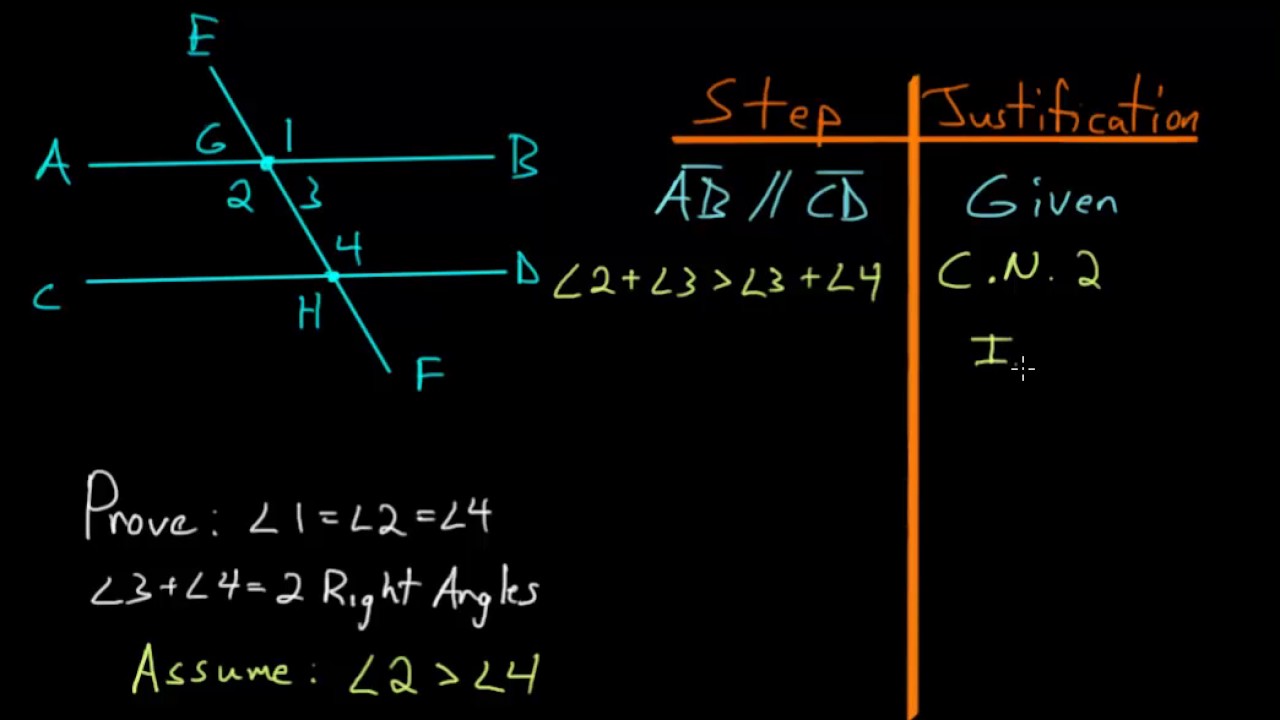 E
G 1
A B
2 3
4
C D
H
F
Step Justification
AB // CD Given
∠2+∠3>∠3+∠4 C.N. 2
I.
Prove: ∠1=∠2=∠4
∠3+∠4=2 Right Angles
Assume: ∠2>∠4